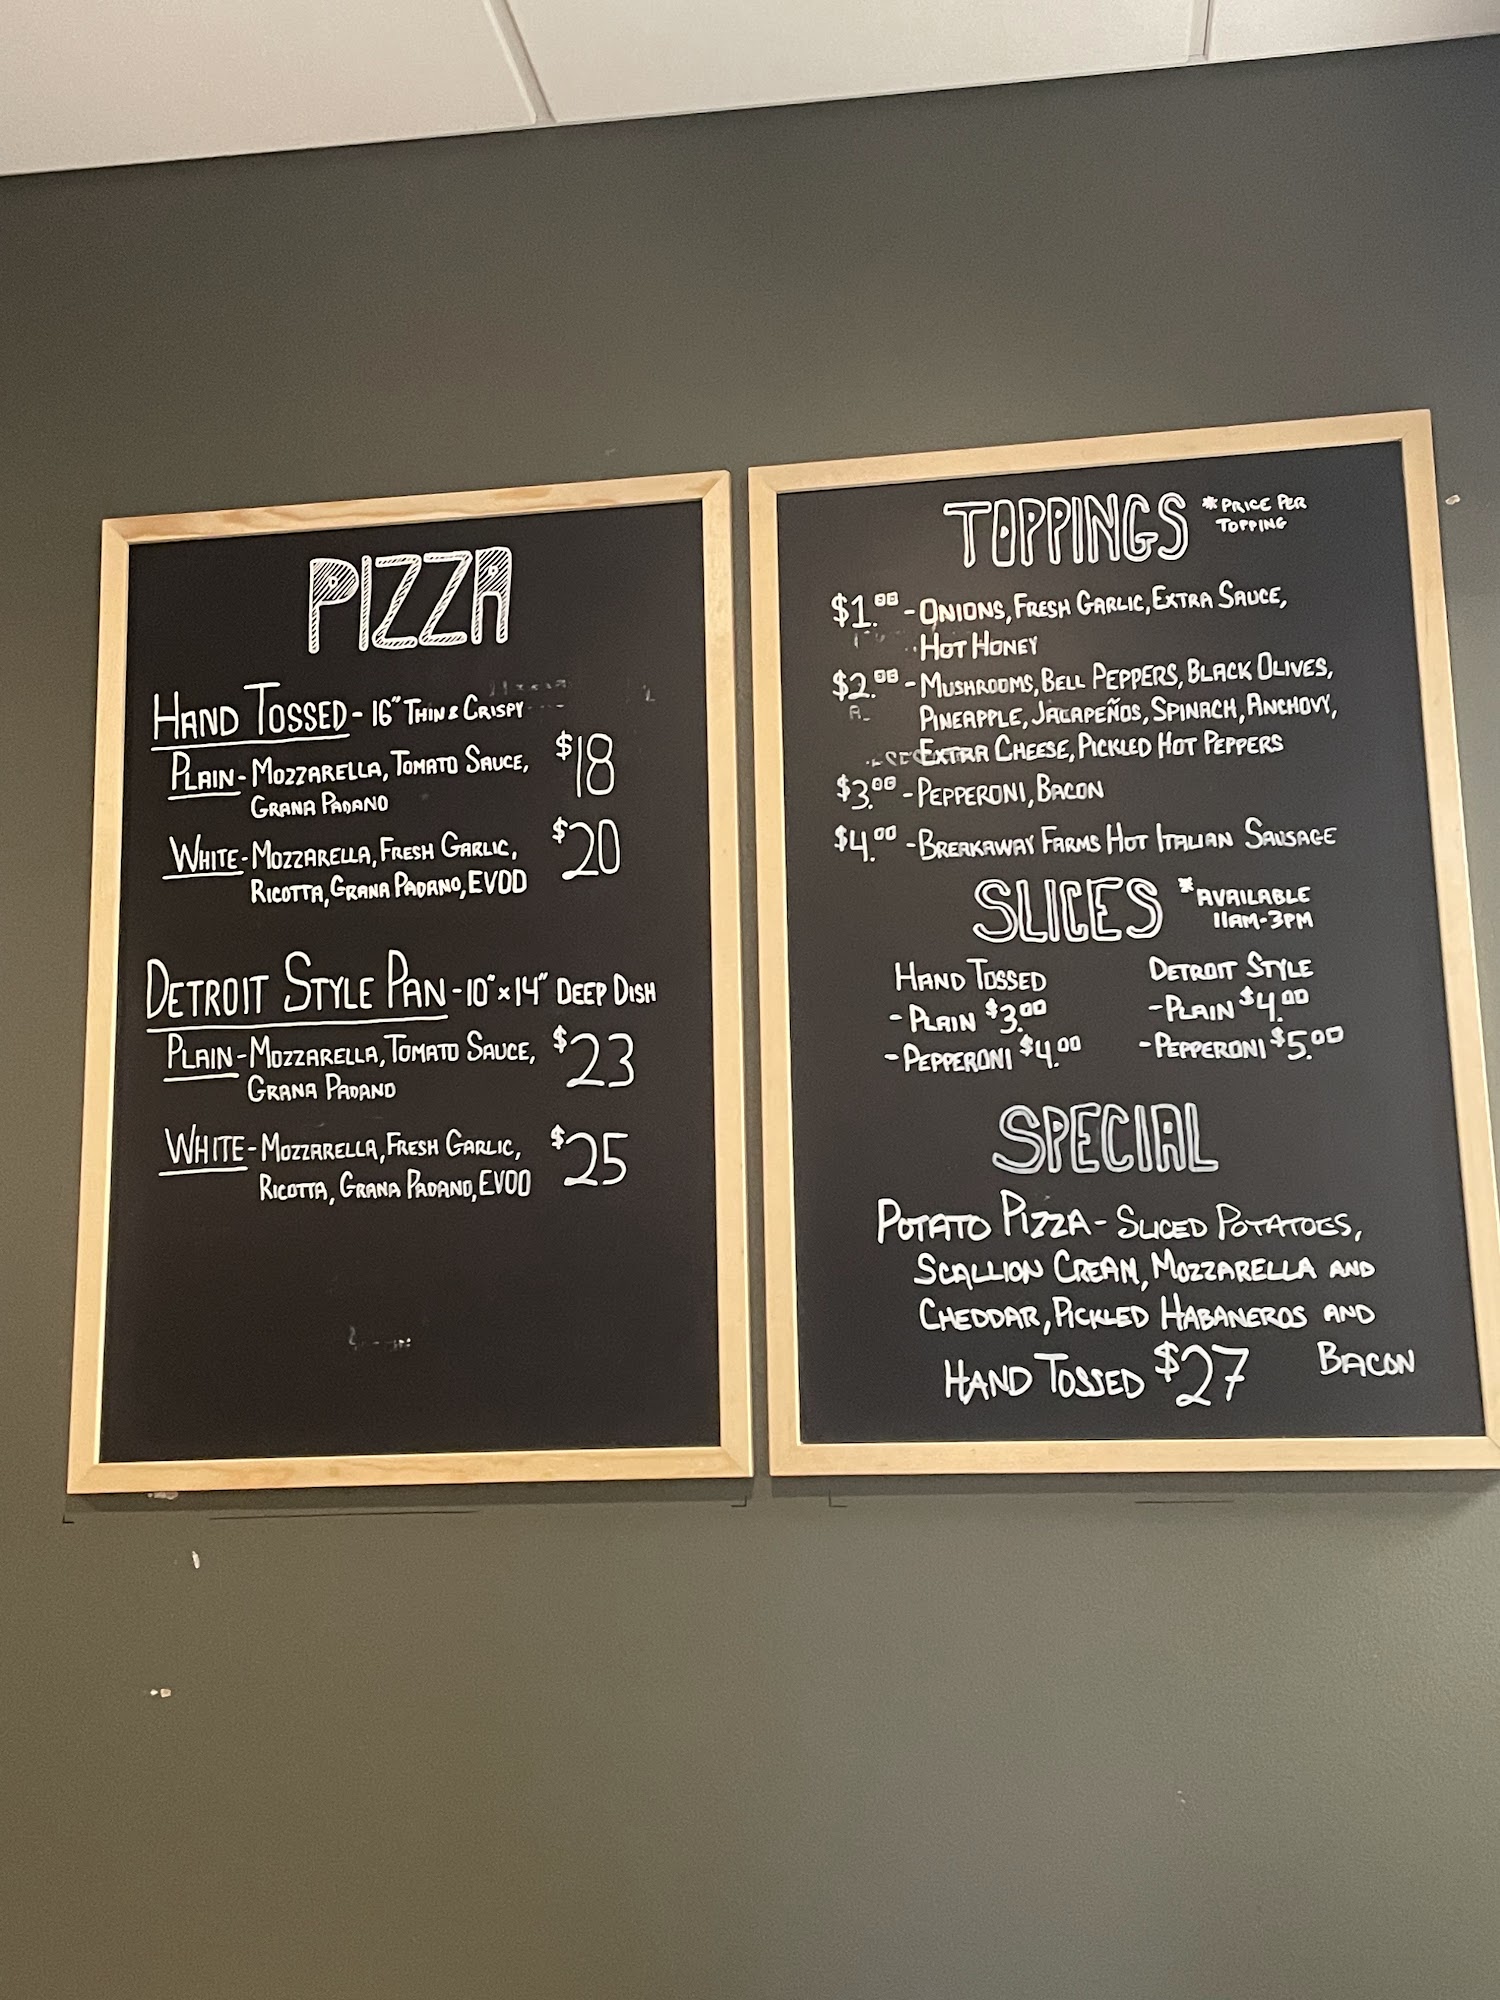 PIZZA
HAND TOSSED - 16" THIN & CRISPY
PLAIN - MOZZARELLA, TOMATO SAUCE, $18
GRANA PADANO
WHITE - MOZZARELLA, FRESH GARLIC, $20
RICOTTA, GRANA PADANO, EVOO
DETROIT STYLE PAN - 10" x 14" DEEP DISH
PLAIN - MOZZARELLA, TOMATO SAUCE, $23
GRANA PADANO
WHITE - MOZZARELLA, FRESH GARLIC, $25
RICOTTA, GRANA PADANO, EVOO
TOPPINGS *PRICE PER
TOPPING
$1.00 - ONIONS, FRESH GARLIC, EXTRA SAUCE,
HOT HONEY
$2.00 - MUSHROOMS, BELL PEPPERS, BLACK OLIVES,
PINEAPPLE, JALAPEÑOS, SPINACH, ANCHOVY,
EXTRA CHEESE, PICKLED HOT PEPPERS
$3.00 - PEPPERONI, BACON
$4.00 - BREAKAWAY FARMS HOT ITALIAN SAUSAGE
SLICES *AVAILABLE
11AM-3PM
HAND TOSSED
- PLAIN $3.00
- PEPPERONI $4.00
DETROIT STYLE
- PLAIN $4.00
- PEPPERONI $5.00
SPECIAL
POTATO PIZZA - SLICED POTATOES,
SCALLION CREAM, MOZZARELLA AND
CHEDDAR, PICKLED HABANEROS AND
BACON
HAND TOSSED $27